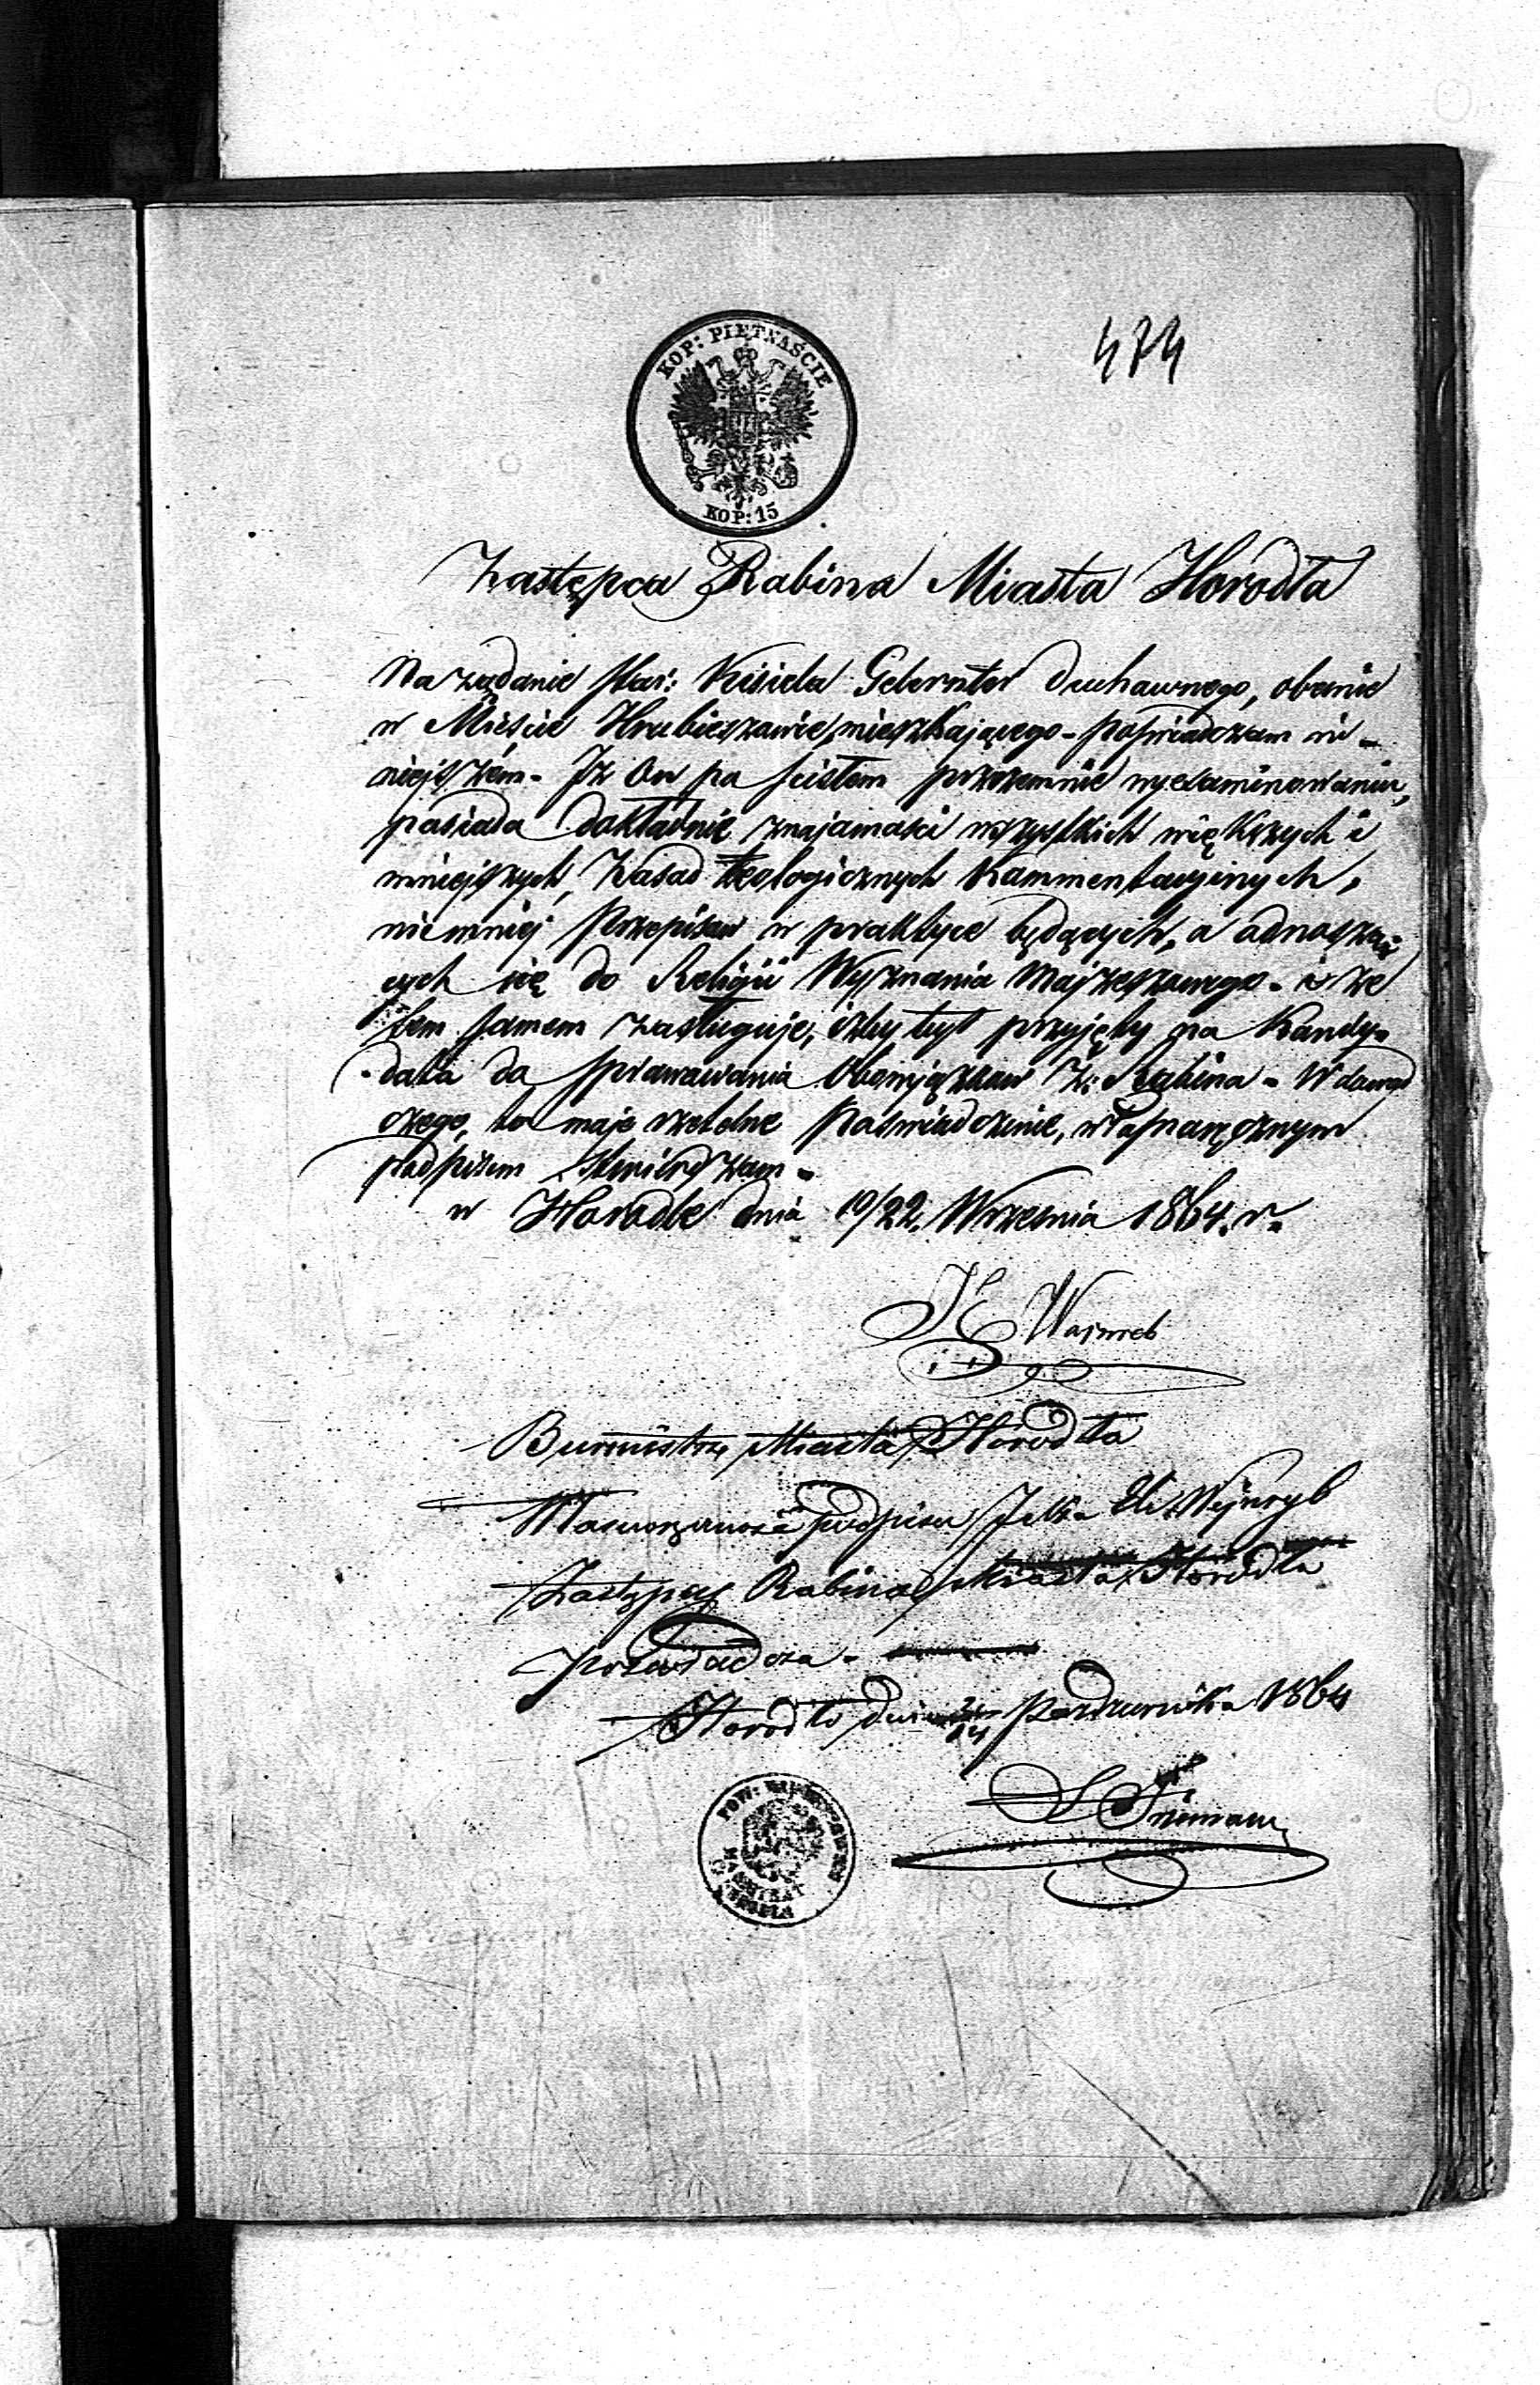 KOP: PIĘTNAŚCIE
KOP: 15
474
Zastępca Rabina Miasta Horodła
Na żądanie Star: Kisiela duchawnego, obecnie
w Mieście Hrubieszawie, mieszkającego - poświadczam ni-
niejszém - Iż On po scisłem przezemnie wyexaminowaniu,
pasiada dokładnie znajamości wszystkich większych i
mniejszych, Zasad teologicznych Kammentacyinych,
niemniej Przepisaw w praktyce będących, a adnoszą-
cych się do Religii Wyznania Majżeszowego - i że
tem samem zasługuje, iżby był przyjęty na Kandy-
-data da sprawawania Obawiązkaw Z: Rabina - W dawod
czego, to maje rzetelne Paświadczenie, własnaręcznym
padpisem stwierdzam -
w Horodle dnia 10/22. Września 1864. r.
Wajnreb
Burmistrz Miasta Horodła
Własnoręczność podpisu Icka Eli Wejnryb
Zastępcy Rabina Miasta Horodła
poświadcza -
Horodło dnia Pazdziernika 1864
POW:
MAGISTRAT